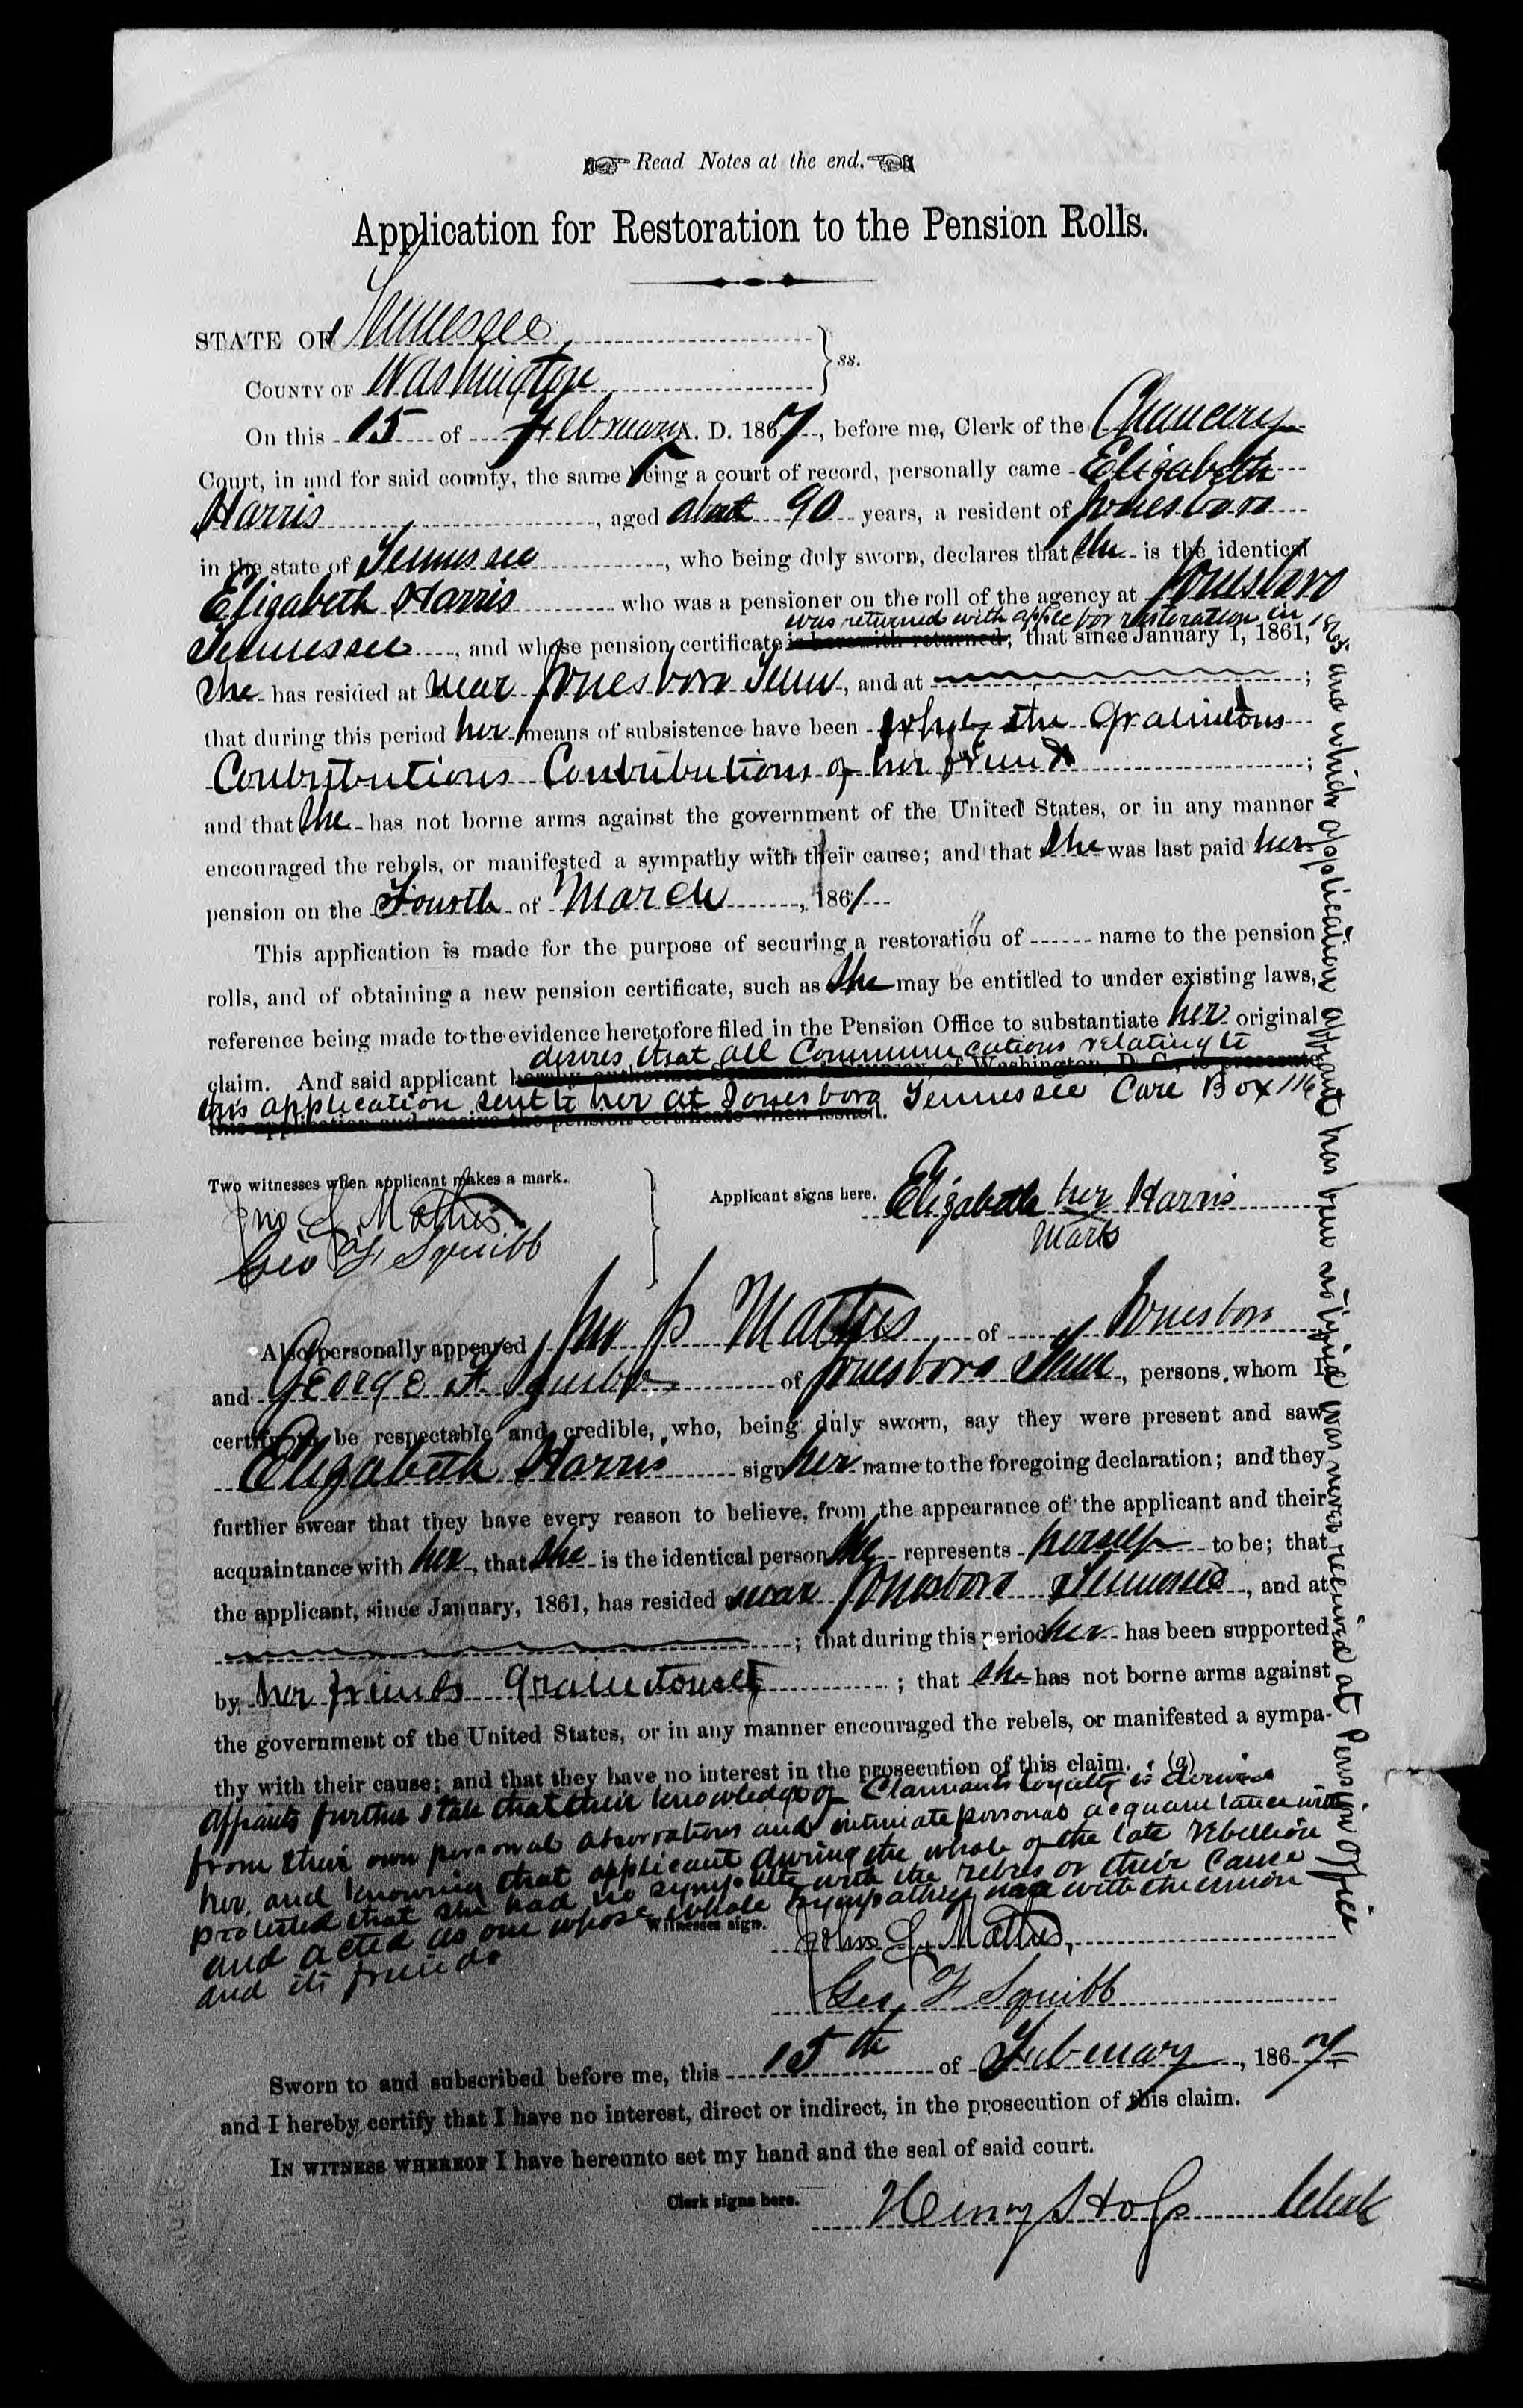 Read Notes at the end.
Application for Restoration to the Pension Rolls.
STATE OF Tennessee
COUNTY OF Washington } ss.
On this 15 of February A. D. 1867, before me, Clerk of the Chancery
Court, in and for said county, the same being a court of record, personally came Elizabeth
Harris, aged about 90 years, a resident of Jonesboro
in the state of Tennessee, who being duly sworn, declares that she is the identical
Elizabeth Harris who was a pensioner on the roll of the agency at Jonesboro
was returned with applc for restoration in 1865 and which application applicant has been notified was never received at Pension Office
Tennessee, and whose pension certificate is herewith returned; that since January 1, 1861,
she has resided at near Jonesboro Tenn, and at
that during this period her means of subsistence have been the Gratuitous
Contributions Contributions of her friends;
and that she has not borne arms against the government of the United States, or in any manner
encouraged the rebels, or manifested a sympathy with their cause; and that she was last paid her
pension on the Fourth of March, 1861
This application is made for the purpose of securing a restoration of name to the pension
rolls, and of obtaining a new pension certificate, such as she may be entitled to under existing laws,
reference being made to the evidence heretofore filed in the Pension Office to substantiate her original
desires that all Communications relating to
claim. And said applicant hereby of Washington, D. C., to present
this application sent to her at Jonesboro Tennessee Care Box 116
this application and receive the pension certificate when issued.
Two witnesses when applicant makes a mark.
Jno. S. Mathis
Geo F Squibb
Applicant signs here. Elizabeth her Harris
Mark
Also personally appeared Jno S Mathis of Jonesboro
and George F. Squibb of Jonesboro Tenn, persons whom I
certify to be respectable and credible, who, being duly sworn, say they were present and saw
Elizabeth Harris sign her name to the foregoing declaration; and they
further swear that they have every reason to believe, from the appearance of the applicant and their
acquaintance with her, that she is the identical person she represents herself to be; that
the applicant, since January, 1861, has resided near Jonesboro Tennessee, and at
; that during this period her has been supported
by her friends Gratuitously; that she has not borne arms against
the government of the United States, or in any manner encouraged the rebels, or manifested a sympa-
thy with their cause; and that they have no interest in the prosecution of this claim. (a)
Affiants further state that their knowledge of Claimants loyalty is derived
from their own personal observations and intimate personal acquaintance with
her, and knowing that applicant during the whole of the late rebellion
protested that she had no sympathy with the rebels or their Cause
and acted as one whose whole sympathies was with the union
and its friends
Witnesses sign. John S. Mathis,
Geo F Squibb
Sworn to and subscribed before me, this 15th of February, 1867
and I hereby certify that I have no interest, direct or indirect, in the prosecution of this claim.
IN WITNESS WHEREOF I have hereunto set my hand and the seal of said court.
Clerk signs here. Henry Hoss Clerk